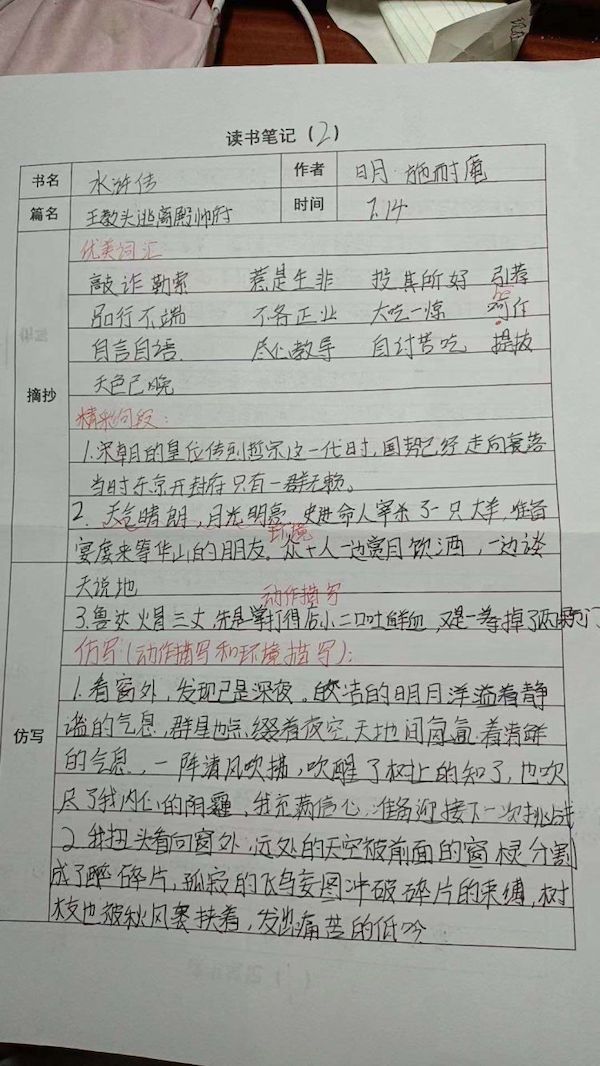 读书笔记(2)
书名 水浒传 作者 明·施耐庵
篇名 王教头逃离殿帅府 时间 7.14
优美词汇
敲诈勒索 惹是生非 投其所好 引荐
品行不端 不务正业 大吃一惊
自言自语 尽心教导 自讨苦吃 提拔
摘抄
天色已晚
精彩句段:
1.宋朝的皇位传到哲宗这一代时,国势已经走向衰落
当时东京开封府只有一群无赖。
2.天气晴朗,月光明亮 史进命人宰杀了一只大羊,准备
环境
宴席来等华山的朋友。众十人一边赏月饮酒,一边谈
天说地
动作描写
3.鲁达火冒三丈,先是掌打得店小二口吐鲜血,又是一拳掉了两颗门
仿写(动作描写和环境描写):
仿写
1.看窗外,发现已是深夜。皎洁的明月洋溢着静
谧的气息,群星点缀着夜空,天地间充溢着清鲜
的气息,一阵清风吹拂,吹醒了树上的知了,也吹
尽了我内心的阴霾,我充满信心,准备迎接下一次挑战
2.我扭头看向窗外,远处的天空被前面的窗棂分割
成了碎片,孤寂的飞鸟妄图冲破碎片的束缚,树
枝也被秋风裹挟着,发出痛苦的低吟